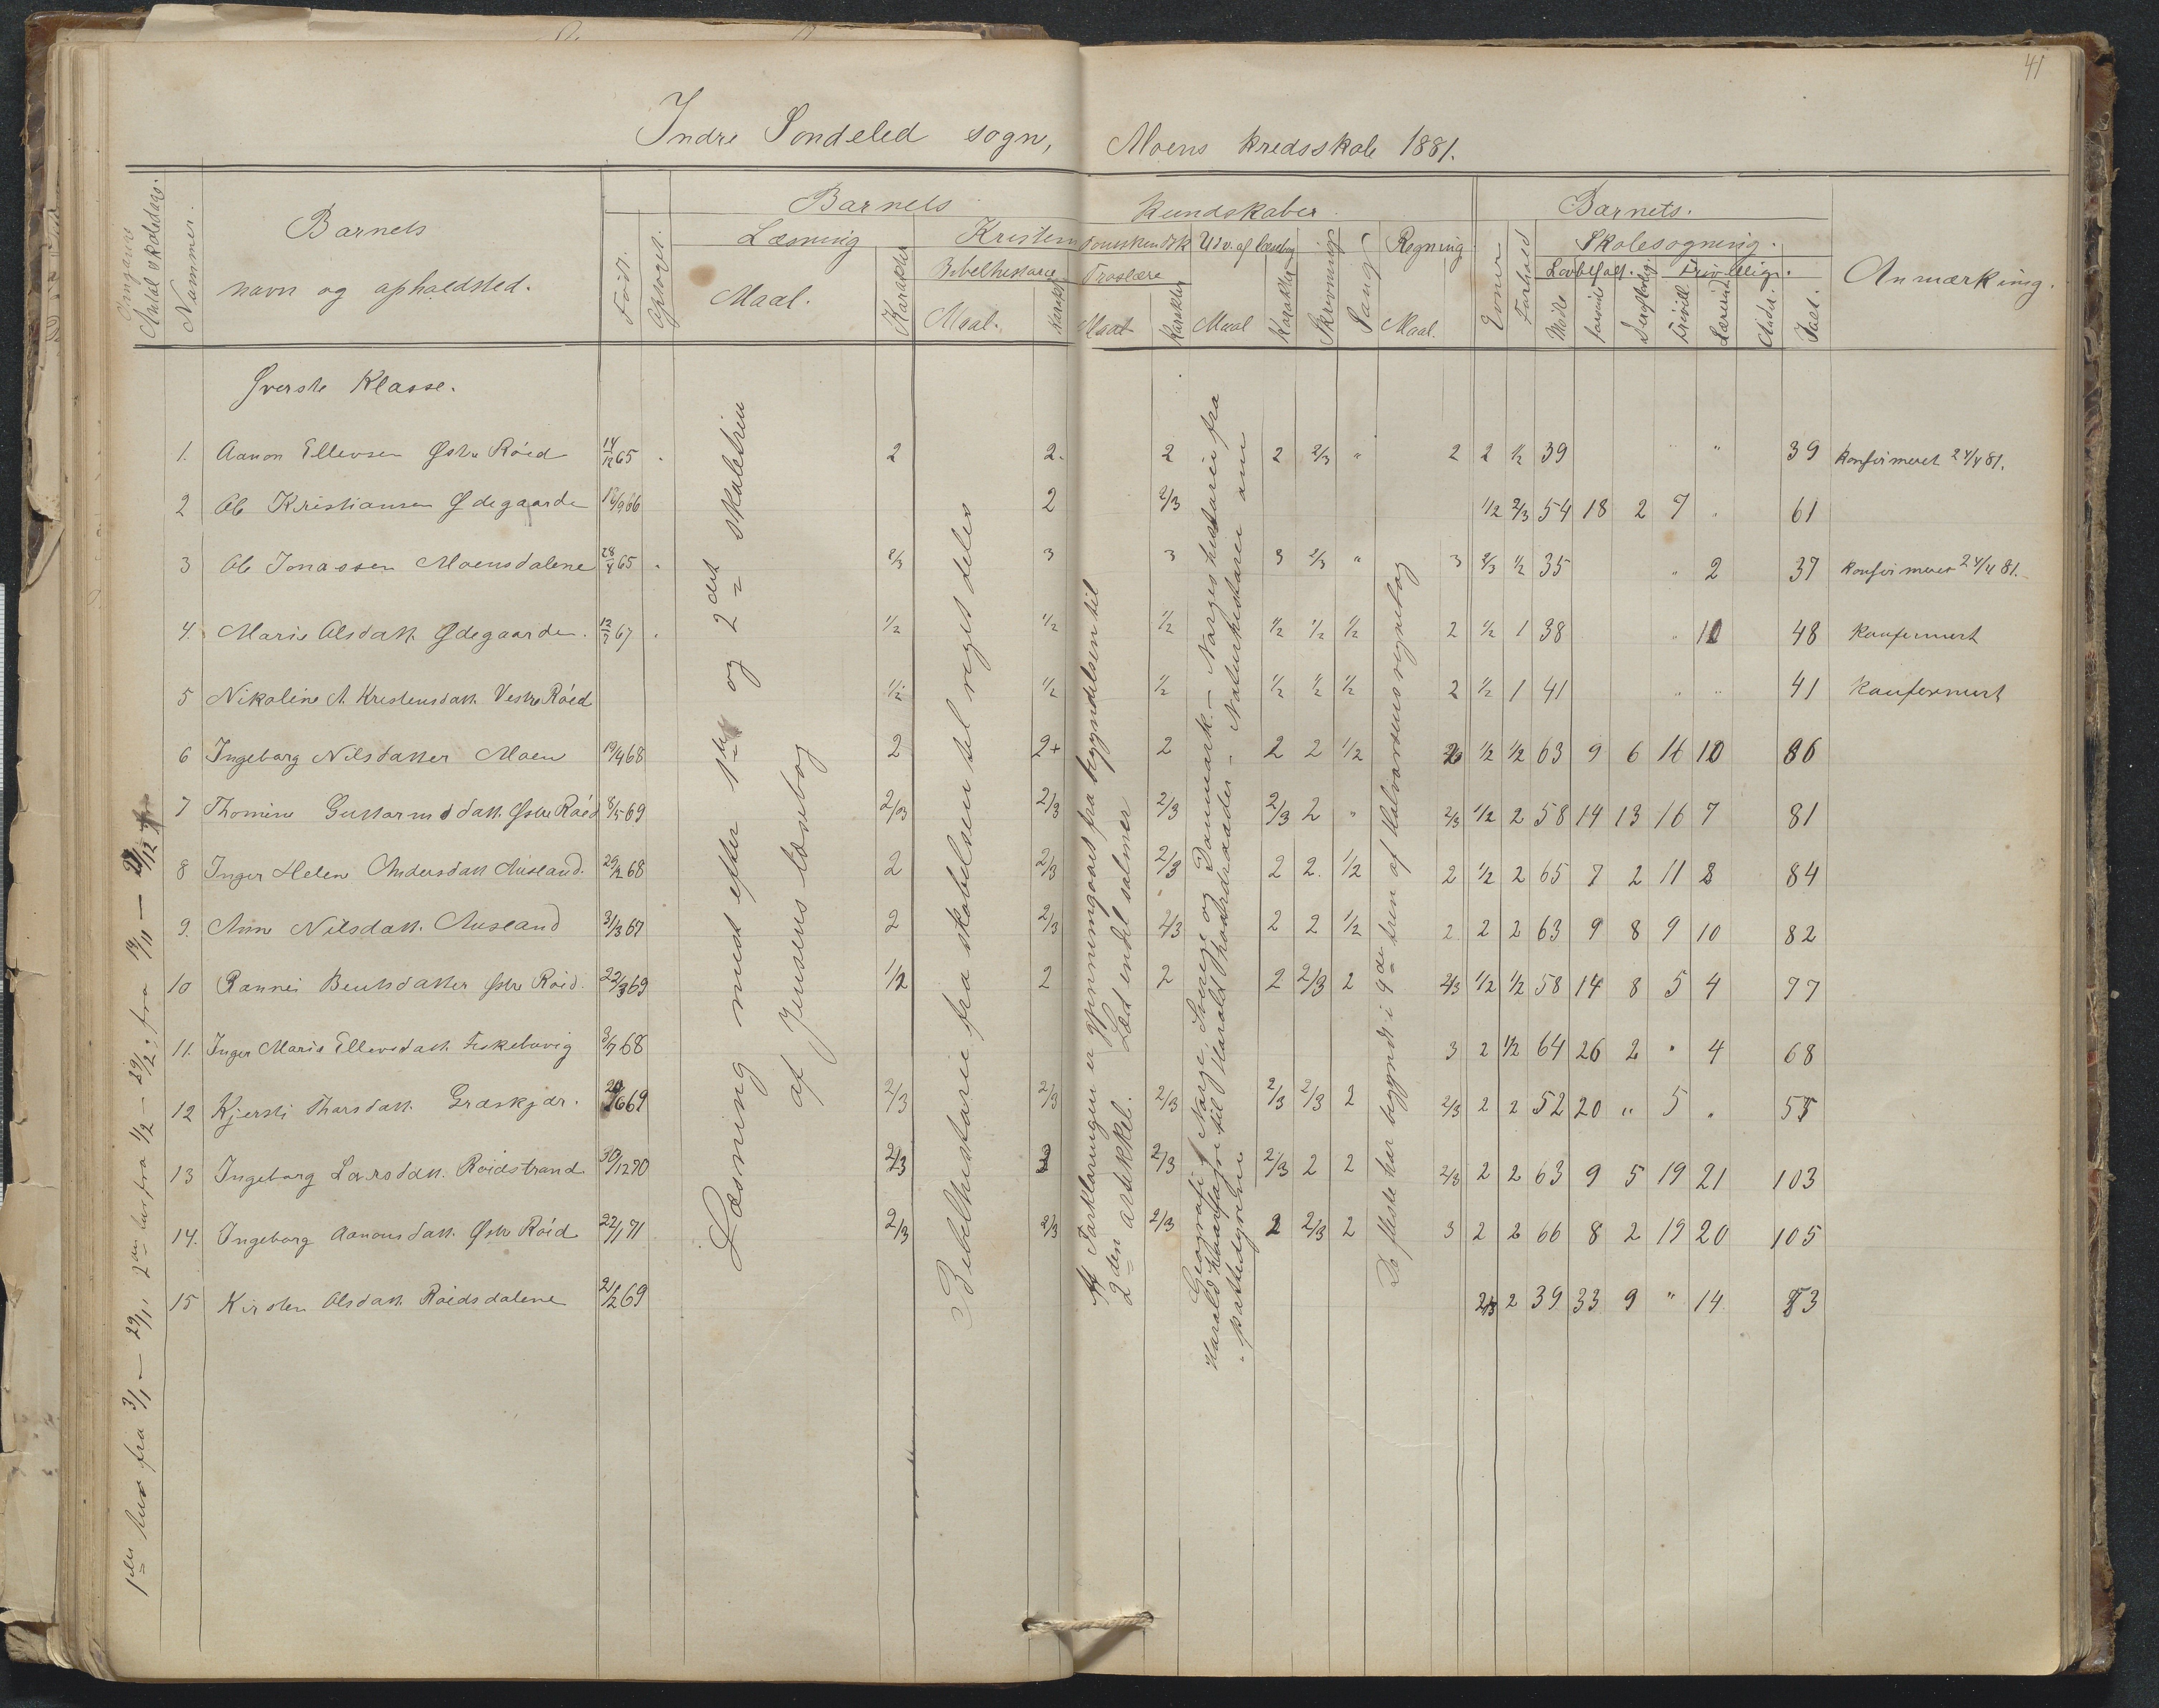 41
Indre Søndeled sogn, Moens kredsskole 1881.
Antal skoledage.
Nummer.
Barnets
navn og opholdsted.
Født.
Barnets kundskaber.
Læsning
Maal.
Karakter
Kristendomskundsk
Bibelhistorie
Maal.
Karakter
Troslære
Maal
Karakter
Udv. af læsebog
Maal
Karakter
Skrivning
Sang
Regning
Maal.
Barnets.
Evner
Forhold
Skolesøgning.
Lovbefalt.
Frivillig.
Mødte
Frivill.
Andre.
Ialt.
Anmærkning.
Øverste Klasse.
1. Aanon Ellevsen Østre Røed 14/12 65 2 2. 2 2 2/3 " 2 2 1/2 39 " 39 konfirmeret 24/4 81.
2 Ole Kristiansen Ødegaarden 66 2 2/3 1/2 2/3 54 18 2 7 " 61
3 Ole Jonassen Moensdalene 28/4 65 2/3 3 3 3 2/3 " 3 2/3 1/2 35 " 2 37 konfirmeret 24/4 81.
4. Marie Olsdatt. Ødegaarden. 12/7 67 1/2 1/2 1/2 1/2 1/2 1/2 2 1/2 1 38 " 10 48 konfirmert
5 Nikoline A. Kristensdatt. Vestre Røed 1/2 1/2 1/2 1/2 1/2 1/2 2 1/2 1 41 " " 41 konfirmert
6 Ingeborg Nilsdatter Moen 19/4 68 2 2+ 2 2 2 1/2 1/2 1/2 63 9 6 10 86
7 Thomine Guttormsdatt. Østre Røed 8/5 69 2/3 2/3 2/3 2/3 2 " 2/3 1/2 2 58 14 13 16 7 81
8 Inger Helene Andersdatt Ausland. 68 2 2/3 2/3 2 2. 1/2 2 1/2 2 65 7 2 11 8 84
9. Anne Nilsdatt. Ausland 31/3 67 2 2/3 2/3 2 2 1/2 2 2 2 63 9 8 9 10 82
10 Rannei Bentsdatter Østre Røid. 22/3 69 1/2 2 2 2 2/3 2 2/3 1/2 1/2 58 14 8 5 4 77
11. Inger Marie Ellevsdatt. Fiskebuvig 3/7 68 3 2 1/2 64 26 2 " 4 68
12 Kjersti Tharsdatt. Græskjær. 69 2/3 2/3 2/3 2/3 2/3 2 2/3 2 2 52 20 " 5 " 57
13 Ingeborg Larsdatt. Røidstrand 30/12 70 2/3 2 2/3 2/3 2 2 2/3 2 2 63 9 5 19 21 103
14. Ingeborg Aanonsdatt. Østre Røid 22/1 71 2/3 2/3 2/3 2 2/3 2 3 2 2 66 8 2 19 20 105
15 Kirsten Olsdatt. Røidsdalene 21/2 69 2/3 2 39 33 9 " 14 53
Læsning mest efter 1ste og 2det skoletrin
af Jensens læsebog
Bibelhistorie fra skabelsen til riget deles
Af Forklaringen er gjennemgaaet fra begyndelsen til
2den artikkel. Læst endel salmer
Geografi: Norge, Sverge og Danmark. - Norges historie fra
Harald Haarfagre til Harald Haardraade - Naturhistorie om
pattedyrene
De fleste har begyndt i 4de trin af Halvorsens regnebog
1ste kurs fra 3/1 — 29/1, 2den kurs fra 1/2 — 29/2, fra 14/11 — 21/12